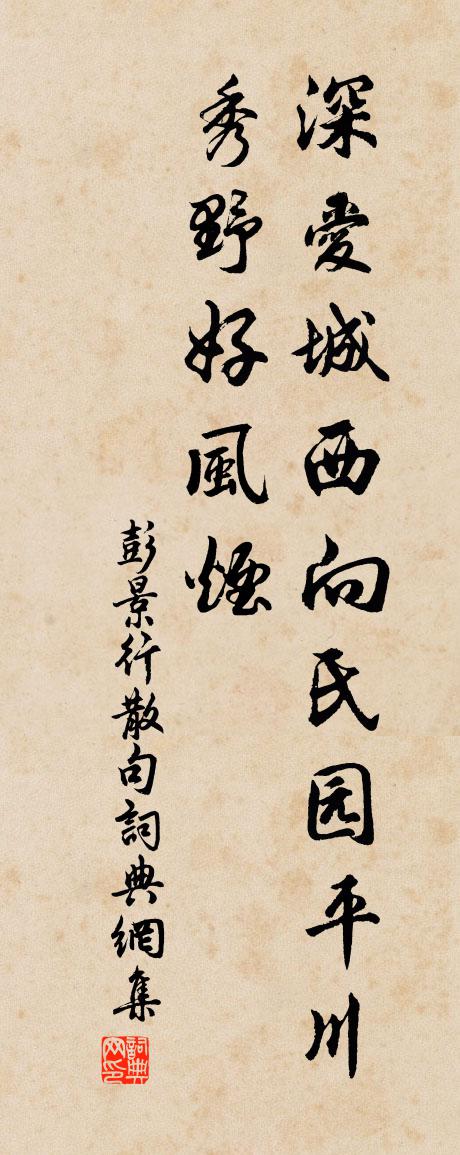 深愛城西向氏园平川
秀野好風煙
彭景行散句詞典網集
詞典网印